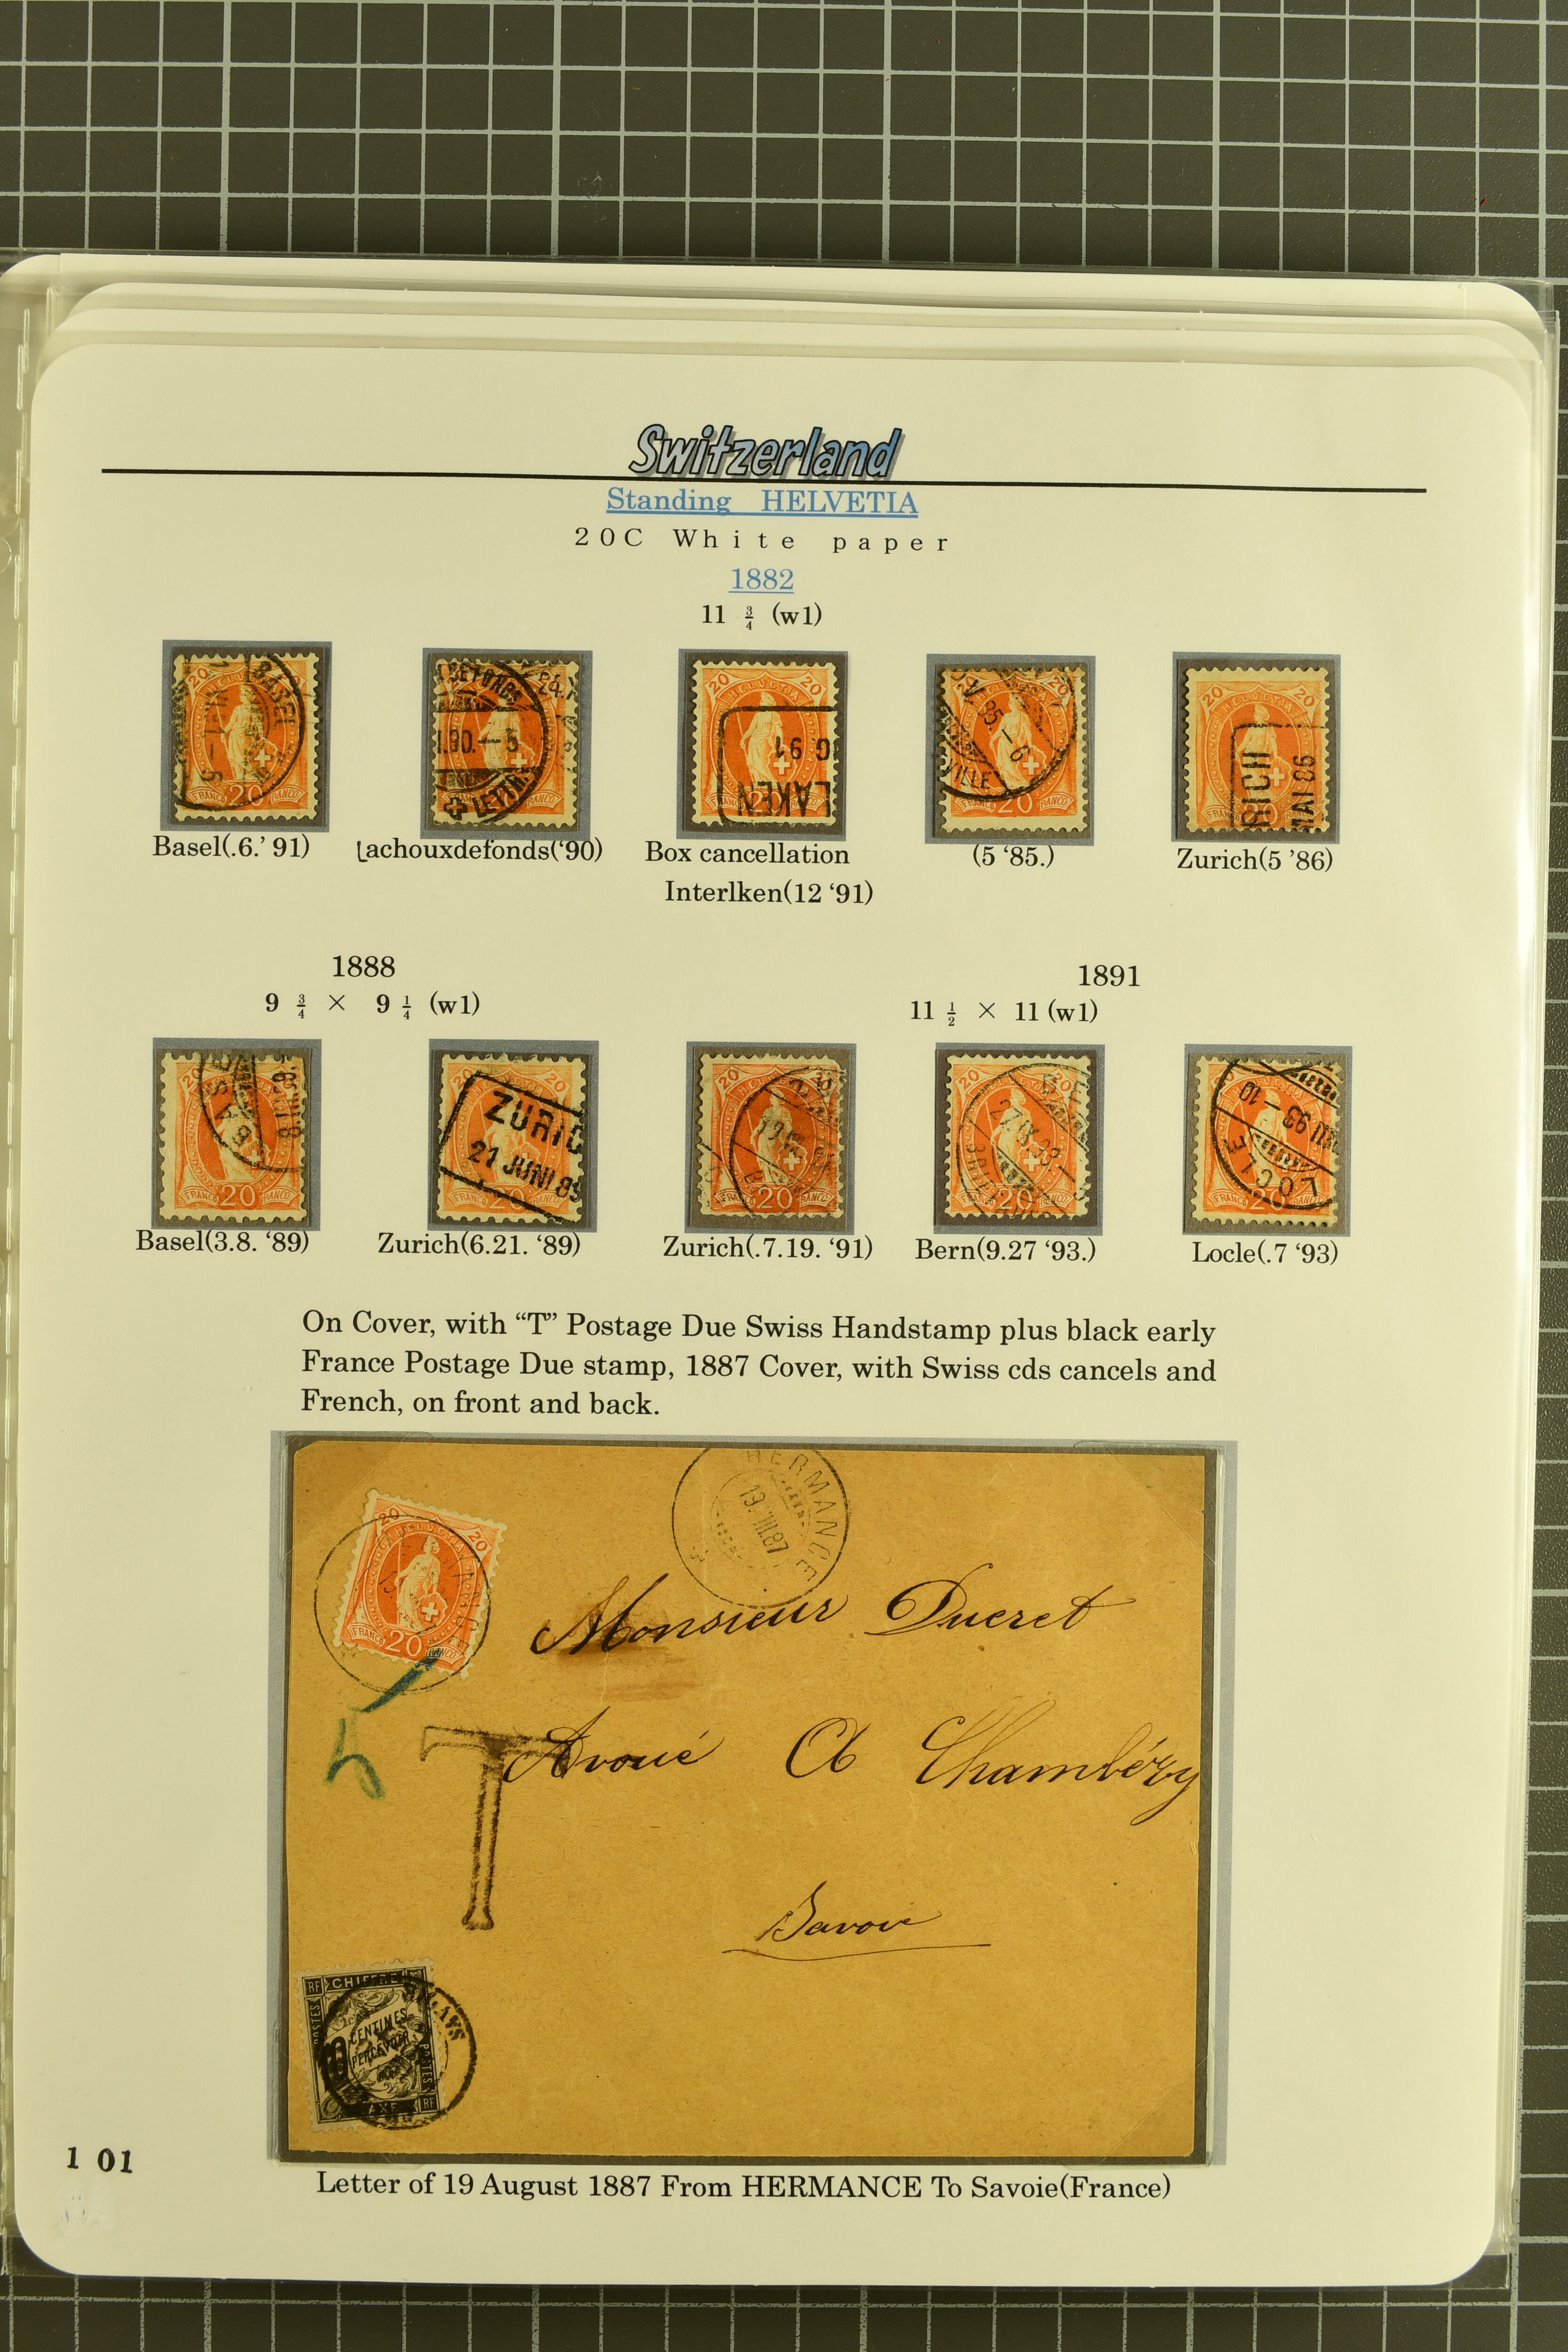 Switzerland
Standing HELVETIA
20C White paper
1882
11 3/4 (w1)
Basel(.6.’ 91)
Lachouxdefonds(‘90)
Box cancellation
Interlken(12 ‘91)
(5 ‘85.)
Zurich(5 ’86)
1888
9 3/4 × 9 1/4 (w1)
1891
11 1/2 × 11 (w1)
ZURIC
21 JUNI 89
Basel(3.8. ‘89)
Zurich(6.21. ‘89)
Zurich(.7.19. ‘91)
Bern(9.27 ‘93.)
Locle(.7 ‘93)
On Cover, with “T” Postage Due Swiss Handstamp plus black early
France Postage Due stamp, 1887 Cover, with Swiss cds cancels and
French, on front and back.
HERMANCE
19.VIII.87
HELVETIA
20 20
FRANCO 20 FRANCO
Monsieur Ducret
5
T
Avoué à Chambéry
Savoie
RF CHIFFRE
CENTIMES
PERCEVOIR
POSTES
TAXE RF
1 01
Letter of 19 August 1887 From HERMANCE To Savoie(France)